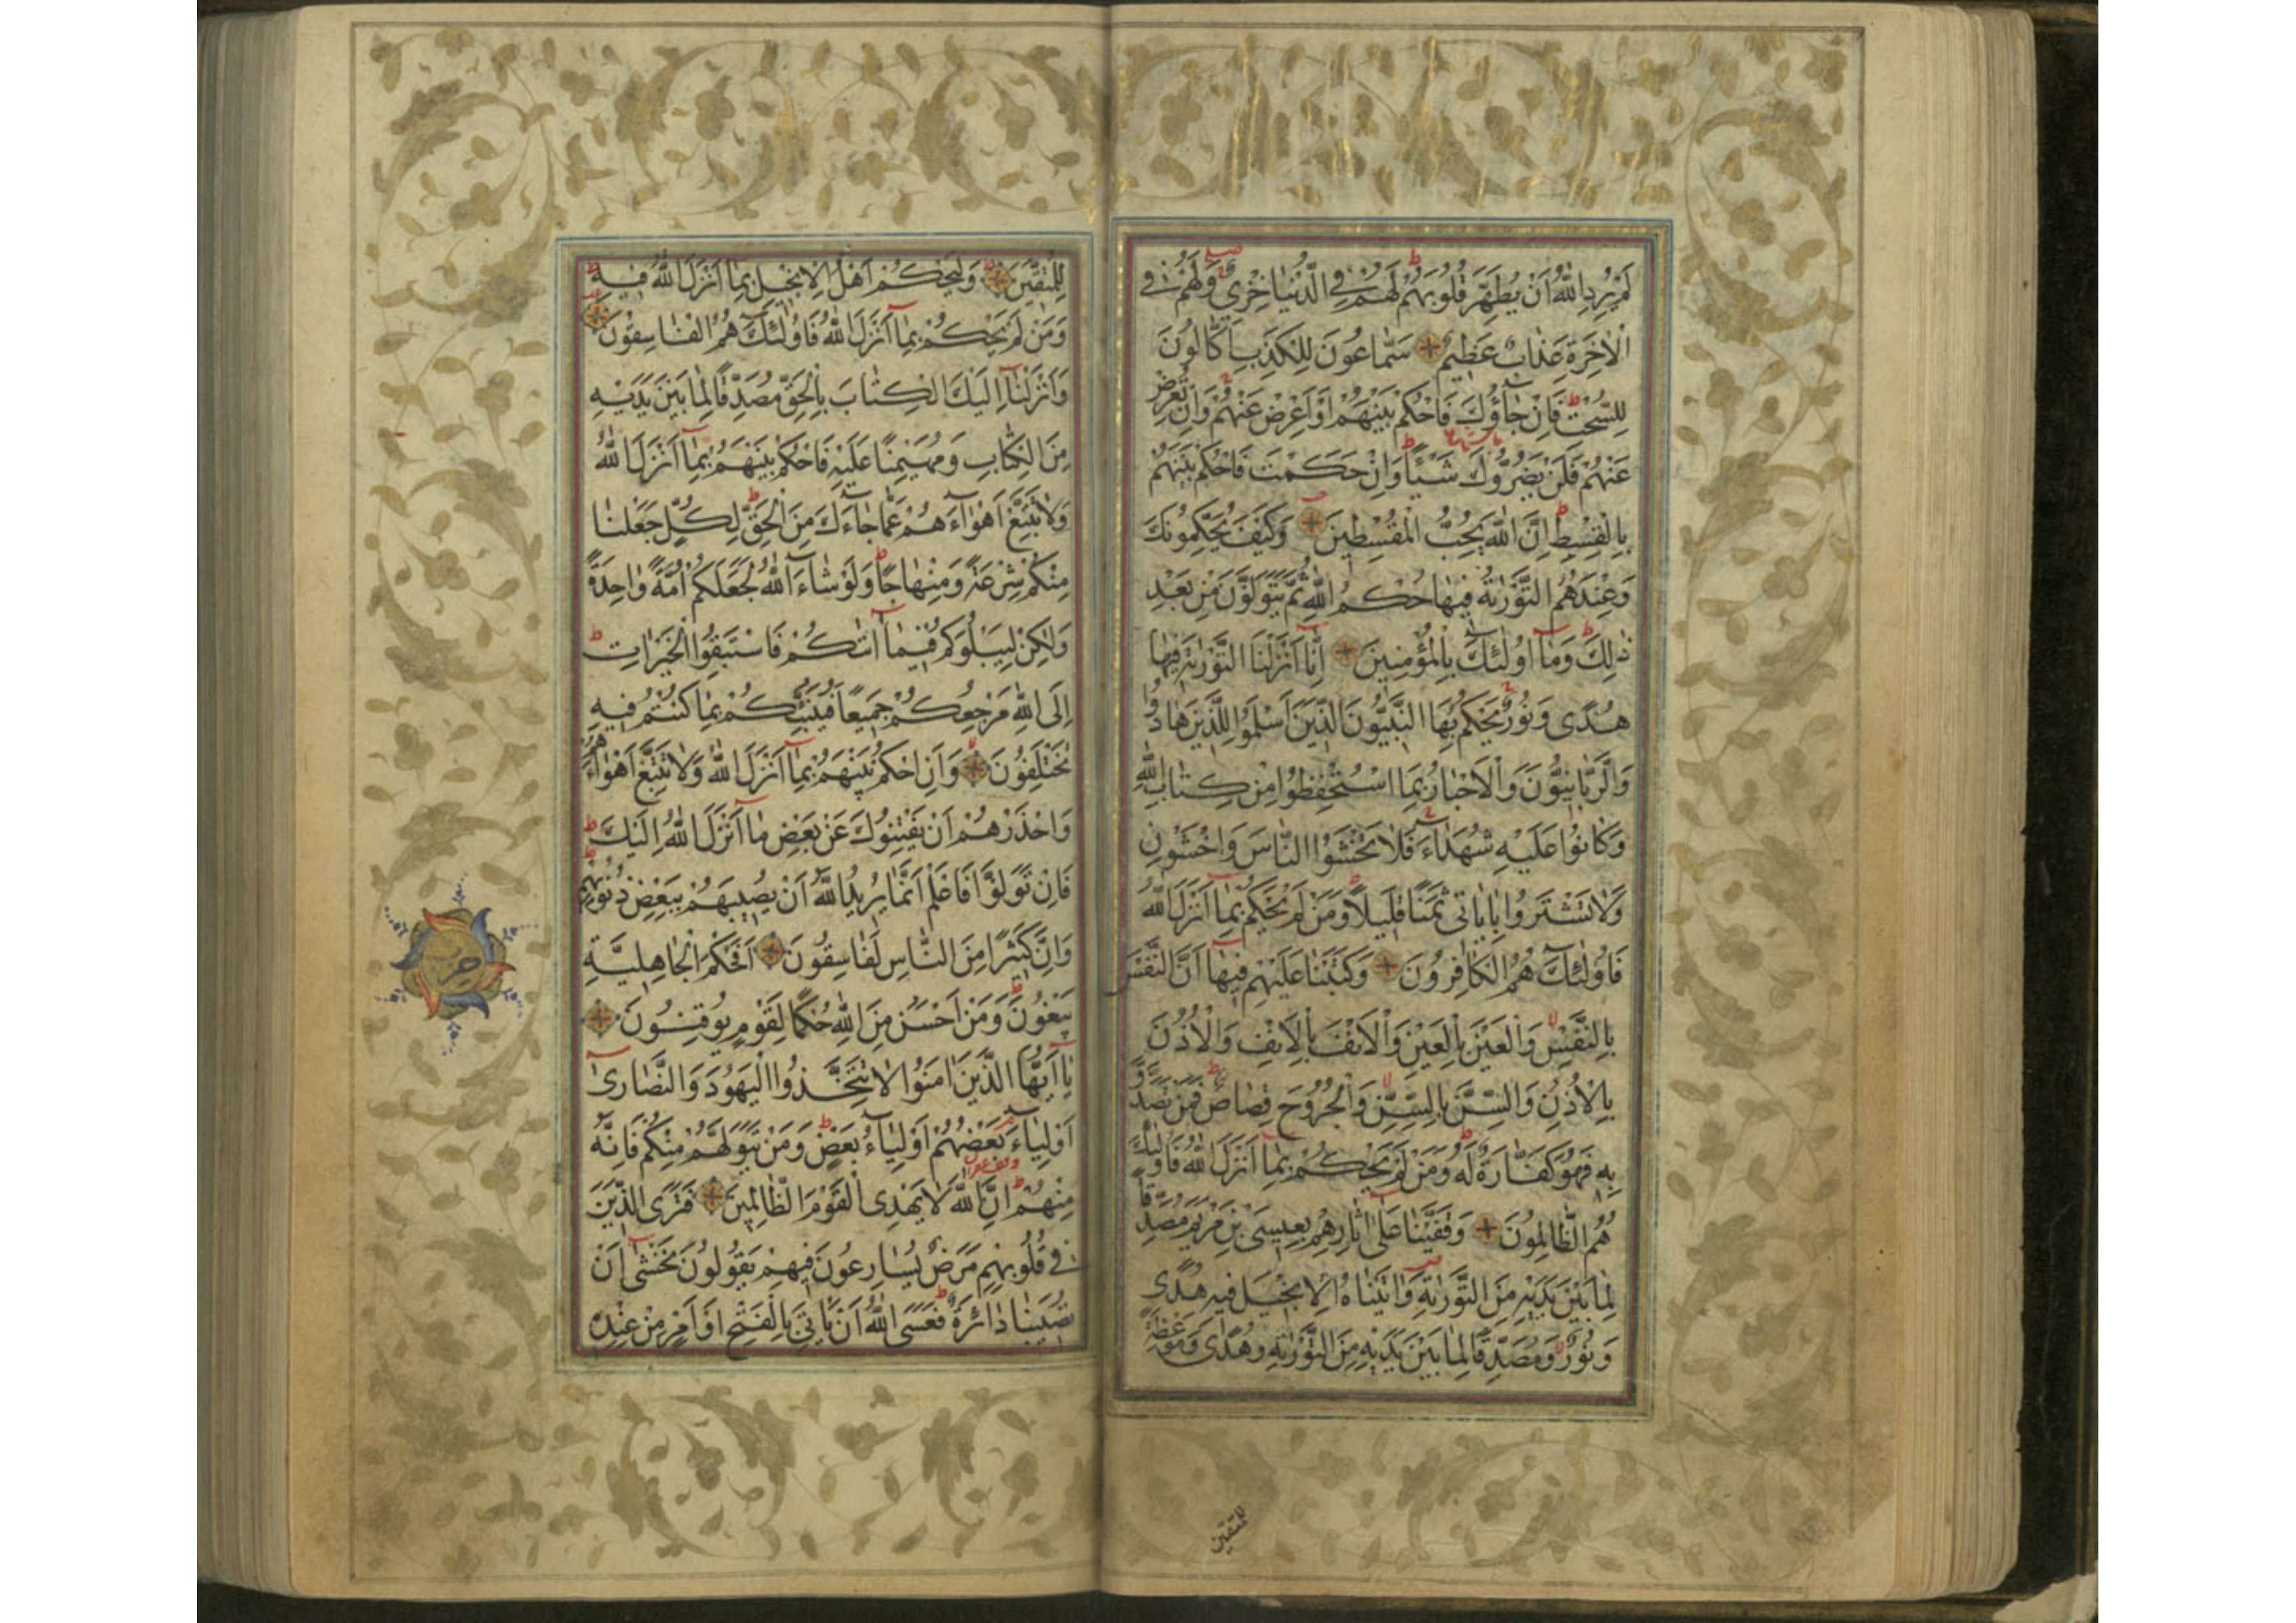 لَمْ يُرِدِ اللّٰهُ اَنْ يُطَهِّرَ قُلُوبَهُمْ لَهُمْ فِي الدُّنْيَا خِزْيٌ وَلَهُمْ فِي
الْاٰخِرَةِ عَذَابٌ عَظِيمٌ سَمَّاعُونَ لِلْكَذِبِ اَكَّالُونَ
لِلسُّحْتِ فَاِنْ جَاؤُكَ فَاحْكُمْ بَيْنَهُمْ اَوْ اَعْرِضْ عَنْهُمْ وَاِنْ تُعْرِضْ
عَنْهُمْ فَلَنْ يَضُرُّوكَ شَيْئًا وَاِنْ حَكَمْتَ فَاحْكُمْ بَيْنَهُمْ
بِالْقِسْطِ اِنَّ اللّٰهَ يُحِبُّ الْمُقْسِطِينَ وَكَيْفَ يُحَكِّمُونَكَ
وَعِنْدَهُمُ التَّوْرٰيةُ فِيهَا حُكْمُ اللّٰهِ ثُمَّ يَتَوَلَّوْنَ مِنْ بَعْدِ
ذٰلِكَ وَمَا اُولٰئِكَ بِالْمُؤْمِنِينَ اِنَّا اَنْزَلْنَا التَّوْرٰيةَ فِيهَا
هُدًى وَنُورٌ يَحْكُمُ بِهَا النَّبِيُّونَ الَّذِينَ اَسْلَمُوا لِلَّذِينَ هَادُوا
وَالرَّبَّانِيُّونَ وَالْاَحْبَارُ بِمَا اسْتُحْفِظُوا مِنْ كِتَابِ اللّٰهِ
وَكَانُوا عَلَيْهِ شُهَدَاءَ فَلَا تَخْشَوُا النَّاسَ وَاخْشَوْنِ
وَلَا تَشْتَرُوا بِاٰيَاتِي ثَمَنًا قَلِيلًا وَمَنْ لَمْ يَحْكُمْ بِمَا اَنْزَلَ اللّٰهُ
فَاُولٰئِكَ هُمُ الْكَافِرُونَ وَكَتَبْنَا عَلَيْهِمْ فِيهَا اَنَّ النَّفْسَ
بِالنَّفْسِ وَالْعَيْنَ بِالْعَيْنِ وَالْاَنْفَ بِالْاَنْفِ وَالْاُذُنَ
بِالْاُذُنِ وَالسِّنَّ بِالسِّنِّ وَالْجُرُوحَ قِصَاصٌ فَمَنْ تَصَدَّقَ
بِهِ فَهُوَ كَفَّارَةٌ لَهُ وَمَنْ لَمْ يَحْكُمْ بِمَا اَنْزَلَ اللّٰهُ فَاُولٰئِكَ
هُمُ الظَّالِمُونَ وَقَفَّيْنَا عَلٰى اٰثَارِهِمْ بِعِيسَى بْنِ مَرْيَمَ مُصَدِّقًا
لِمَا بَيْنَ يَدَيْهِ مِنَ التَّوْرٰيةِ وَاٰتَيْنَاهُ الْاِنْجِيلَ فِيهِ هُدًى
وَنُورٌ وَمُصَدِّقًا لِمَا بَيْنَ يَدَيْهِ مِنَ التَّوْرٰيةِ وَهُدًى وَمَوْعِظَةً
للمتقين
لِلْمُتَّقِينَ وَلْيَحْكُمْ اَهْلُ الْاِنْجِيلِ بِمَا اَنْزَلَ اللّٰهُ فِيهِ
وَمَنْ لَمْ يَحْكُمْ بِمَا اَنْزَلَ اللّٰهُ فَاُولٰئِكَ هُمُ الْفَاسِقُونَ
وَاَنْزَلْنَا اِلَيْكَ الْكِتَابَ بِالْحَقِّ مُصَدِّقًا لِمَا بَيْنَ يَدَيْهِ
مِنَ الْكِتَابِ وَمُهَيْمِنًا عَلَيْهِ فَاحْكُمْ بَيْنَهُمْ بِمَا اَنْزَلَ اللّٰهُ
وَلَا تَتَّبِعْ اَهْوَاءَهُمْ عَمَّا جَاءَكَ مِنَ الْحَقِّ لِكُلٍّ جَعَلْنَا
مِنْكُمْ شِرْعَةً وَمِنْهَاجًا وَلَوْ شَاءَ اللّٰهُ لَجَعَلَكُمْ اُمَّةً وَاحِدَةً
وَلٰكِنْ لِيَبْلُوَكُمْ فِيمَا اٰتٰيكُمْ فَاسْتَبِقُوا الْخَيْرَاتِ
اِلَى اللّٰهِ مَرْجِعُكُمْ جَمِيعًا فَيُنَبِّئُكُمْ بِمَا كُنْتُمْ فِيهِ
تَخْتَلِفُونَ وَاَنِ احْكُمْ بَيْنَهُمْ بِمَا اَنْزَلَ اللّٰهُ وَلَا تَتَّبِعْ اَهْوَاءَهُمْ
وَاحْذَرْهُمْ اَنْ يَفْتِنُوكَ عَنْ بَعْضِ مَا اَنْزَلَ اللّٰهُ اِلَيْكَ
فَاِنْ تَوَلَّوْا فَاعْلَمْ اَنَّمَا يُرِيدُ اللّٰهُ اَنْ يُصِيبَهُمْ بِبَعْضِ ذُنُوبِهِمْ
وَاِنَّ كَثِيرًا مِنَ النَّاسِ لَفَاسِقُونَ اَفَحُكْمَ الْجَاهِلِيَّةِ
يَبْغُونَ وَمَنْ اَحْسَنُ مِنَ اللّٰهِ حُكْمًا لِقَوْمٍ يُوقِنُونَ
يَا اَيُّهَا الَّذِينَ اٰمَنُوا لَا تَتَّخِذُوا الْيَهُودَ وَالنَّصَارٰى
اَوْلِيَاءَ بَعْضُهُمْ اَوْلِيَاءُ بَعْضٍ وَمَنْ يَتَوَلَّهُمْ مِنْكُمْ فَاِنَّهُ
مِنْهُمْ اِنَّ اللّٰهَ لَا يَهْدِي الْقَوْمَ الظَّالِمِينَ فَتَرَى الَّذِينَ
فِي قُلُوبِهِمْ مَرَضٌ يُسَارِعُونَ فِيهِمْ يَقُولُونَ نَخْشٰى اَنْ
تُصِيبَنَا دَائِرَةٌ فَعَسَى اللّٰهُ اَنْ يَاْتِيَ بِالْفَتْحِ اَوْ اَمْرٍ مِنْ عِنْدِهِ